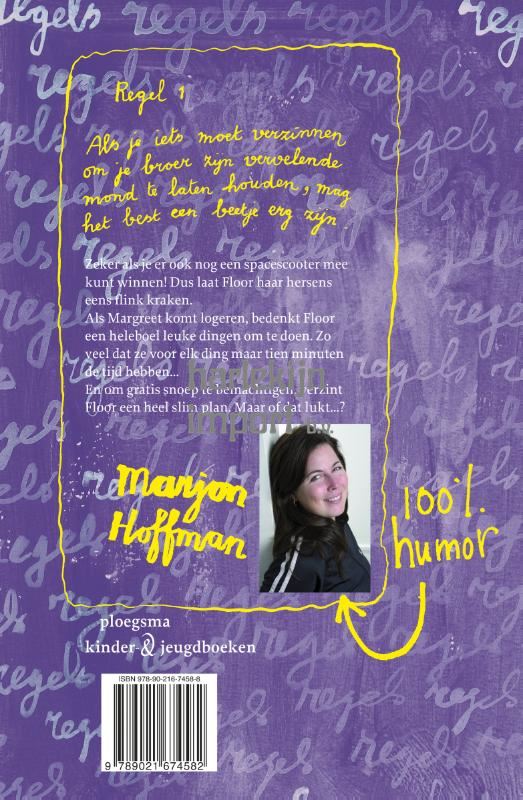 Regel 1
Als je iets moet verzinnen
om je broer zijn vervelende
mond te laten houden, mag
het best een beetje erg zijn.
Zeker als je er ook nog een spacescooter mee
kunt winnen! Dus laat Floor haar hersens
eens flink kraken.
Als Margreet komt logeren, bedenkt Floor
een heleboel leuke dingen om te doen. Zo
veel dat ze voor elk ding maar tien minuten
de tijd hebben...
En om gratis snoep te bemachtigen, verzint
Floor een heel slim plan. Maar of dat lukt...?
harlekijn
import b.v.
Marjon
Hoffman
100%
humor
ploegsma
kinder- & jeugdboeken
ISBN 978-90-216-7458-8
9 789021 674582